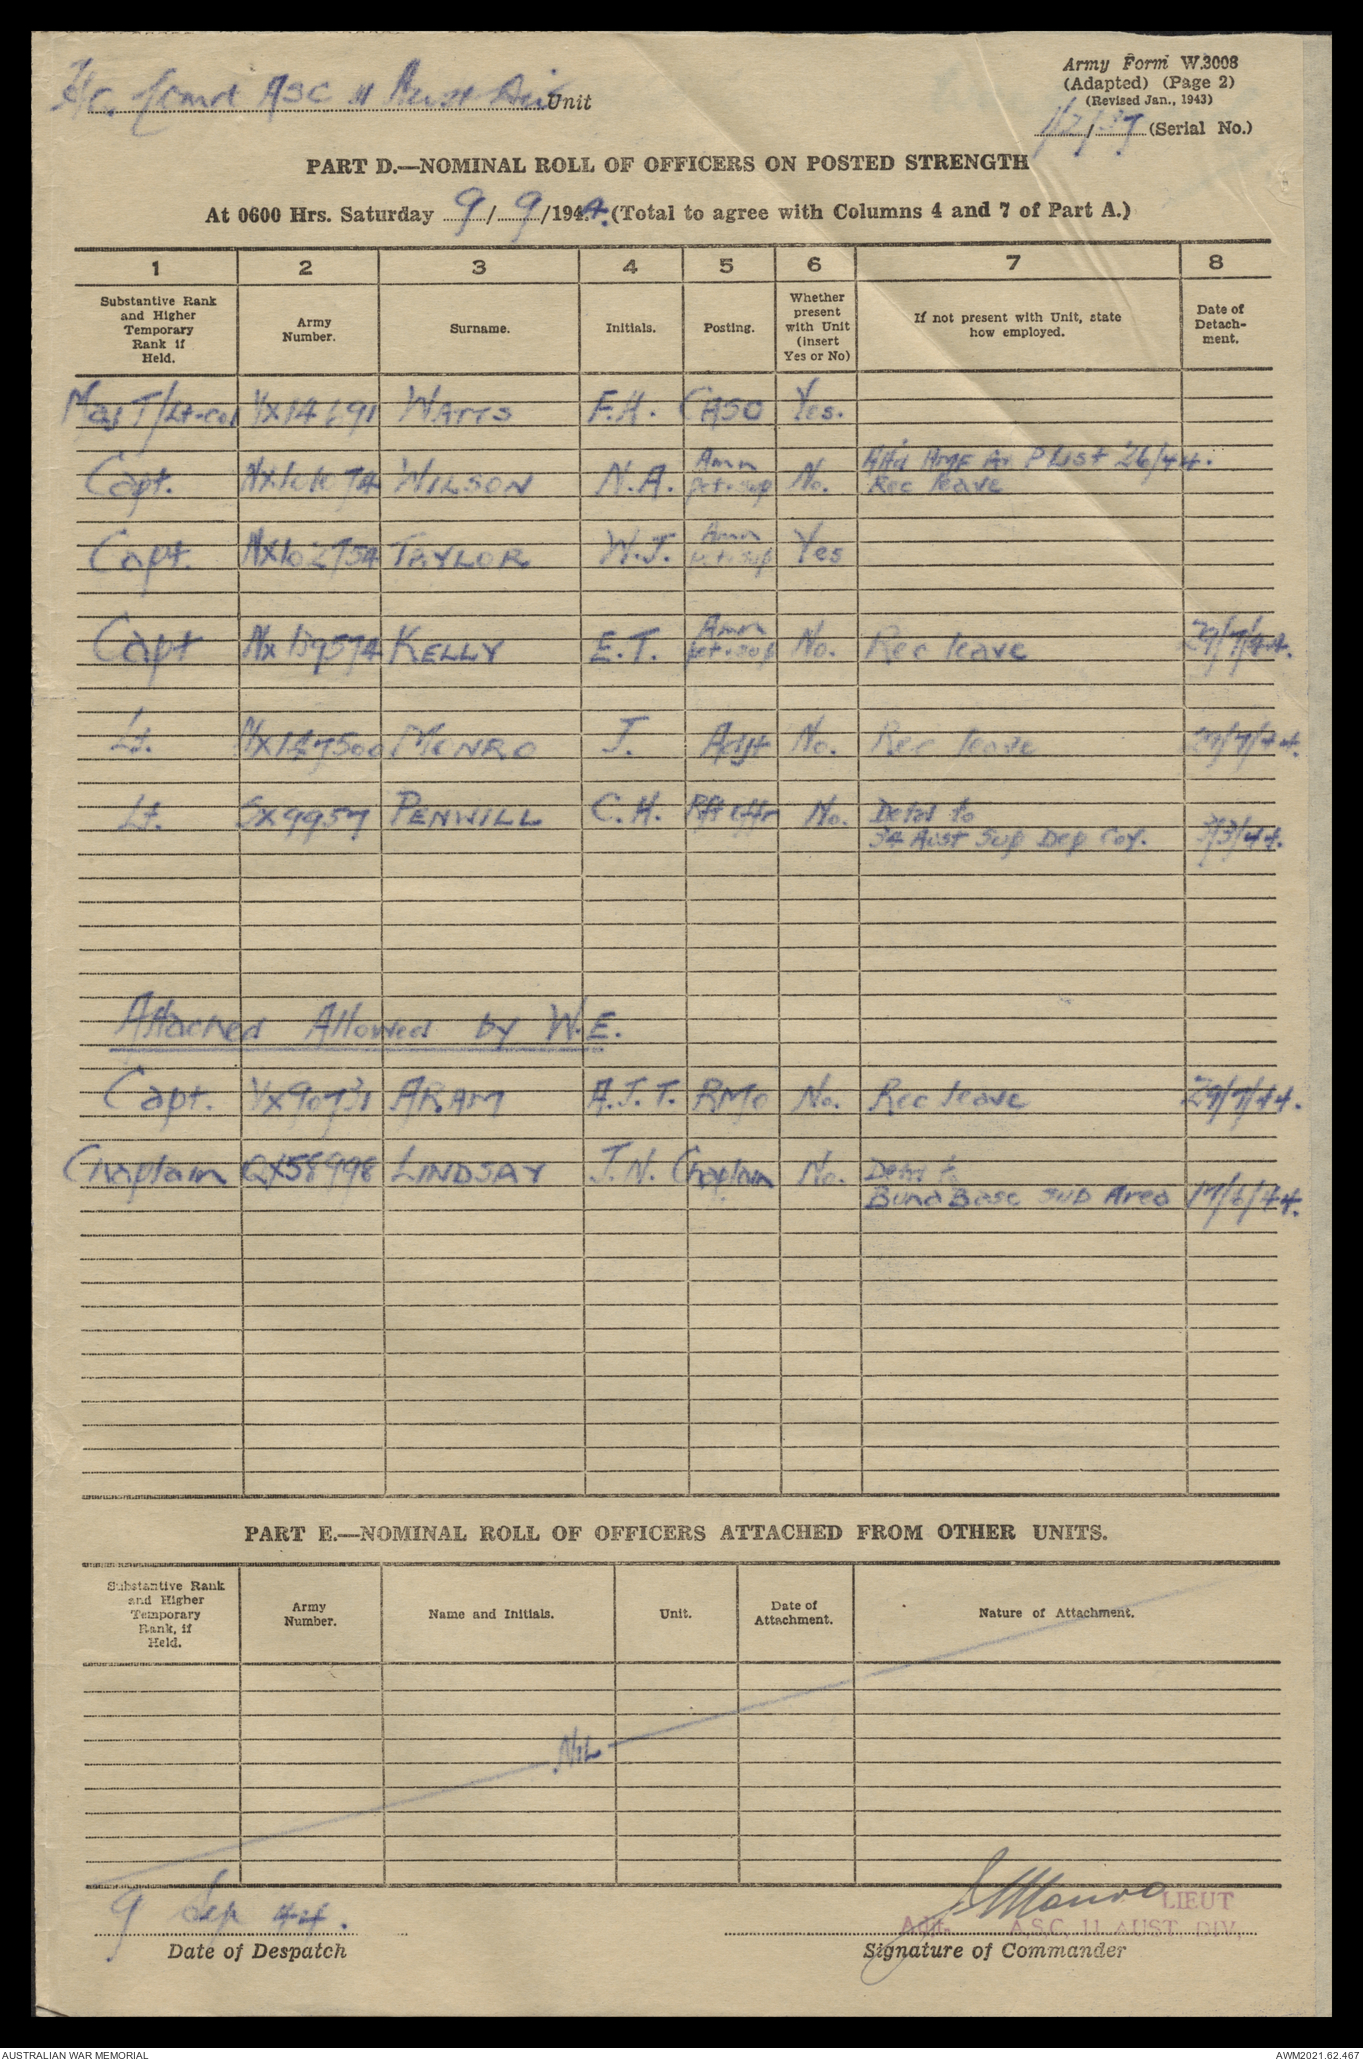 Army Form W.3008
(Adapted) (Page 2)
(Revised Jan., 1943)
Hq. Comd ASC 11 Aust Div Unit
12/37 (Serial No.)
PART D.—NOMINAL ROLL OF OFFICERS ON POSTED STRENGTH
At 0600 Hrs. Saturday 9/9/1944. (Total to agree with Columns 4 and 7 of Part A.)
1 2 3 4 5 6 7 8
Substantive Rank and Higher Temporary Rank if Held. Army Number. Surname. Initials. Posting. Whether present with Unit (insert Yes or No) If not present with Unit, state how employed. Date of Detach-ment.
Maj T/Lt-Col VX14691 WATTS F.H. CASO Yes.
Capt. NX101074 WILSON N.A. Amn pet. sup No. Attd AMF Ar P List 26/44. Rec leave
Capt. NX102754 TAYLOR W.J. Amn pet. sup Yes
Capt NX139574 KELLY E.T. Amn pet. sup No. Rec leave 29/7/44.
Lt. NX147500 MONRO J. Adjt No. Rec leave 29/7/44.
Lt. SX9957 PENWILL C.H. Rft offr No. Detd to 34 Aust Sup Dep Coy. 3/3/44.
Attached Allowed by W.E.
Capt. VX90731 ARAM A.J.T. RMO No. Rec leave 29/7/44.
Chaplain QX58998 LINDSAY J.N. Chaplain No. Detd to Buna Base Sub Area 17/6/44.
PART E.—NOMINAL ROLL OF OFFICERS ATTACHED FROM OTHER UNITS.
Substantive Rank and Higher Temporary Rank, if Held. Army Number. Name and Initials. Unit. Date of Attachment. Nature of Attachment.
NIL
9 Sep 44.
Date of Despatch
J Monro LIEUT
Adjt. A.S.C. 11 AUST. DIV.
Signature of Commander
AUSTRALIAN WAR MEMORIAL
AWM2021.62.467